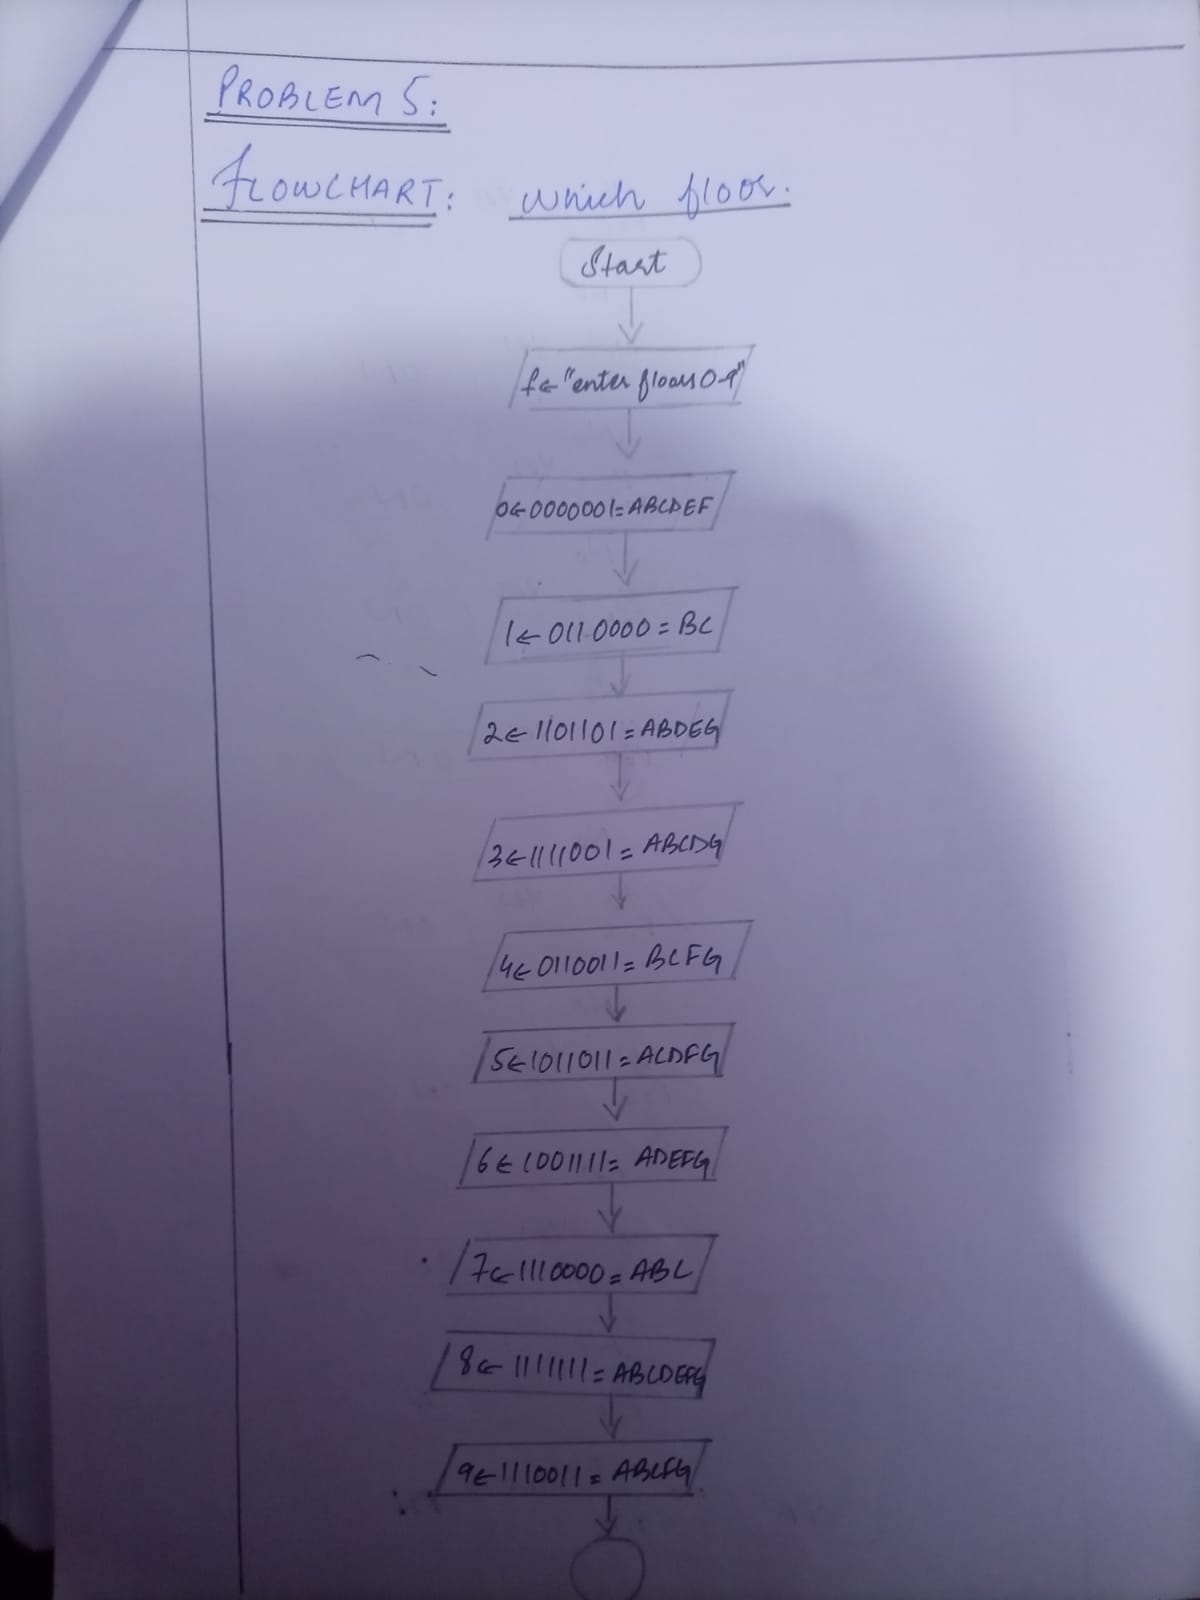 PROBLEM 5:
FLOWCHART: which floor.
Start
f← "enter floors 0-9"
0←0000001=ABCDEF
1←0110000=BC
2←1101101=ABDEG
3←1111001=ABCDG
4←0110011=BCFG
5←1011011=ACDFG
6←1001111=ADEFG
7←1110000=ABC
8←1111111=ABCDEFG
9←1110011=ABCFG